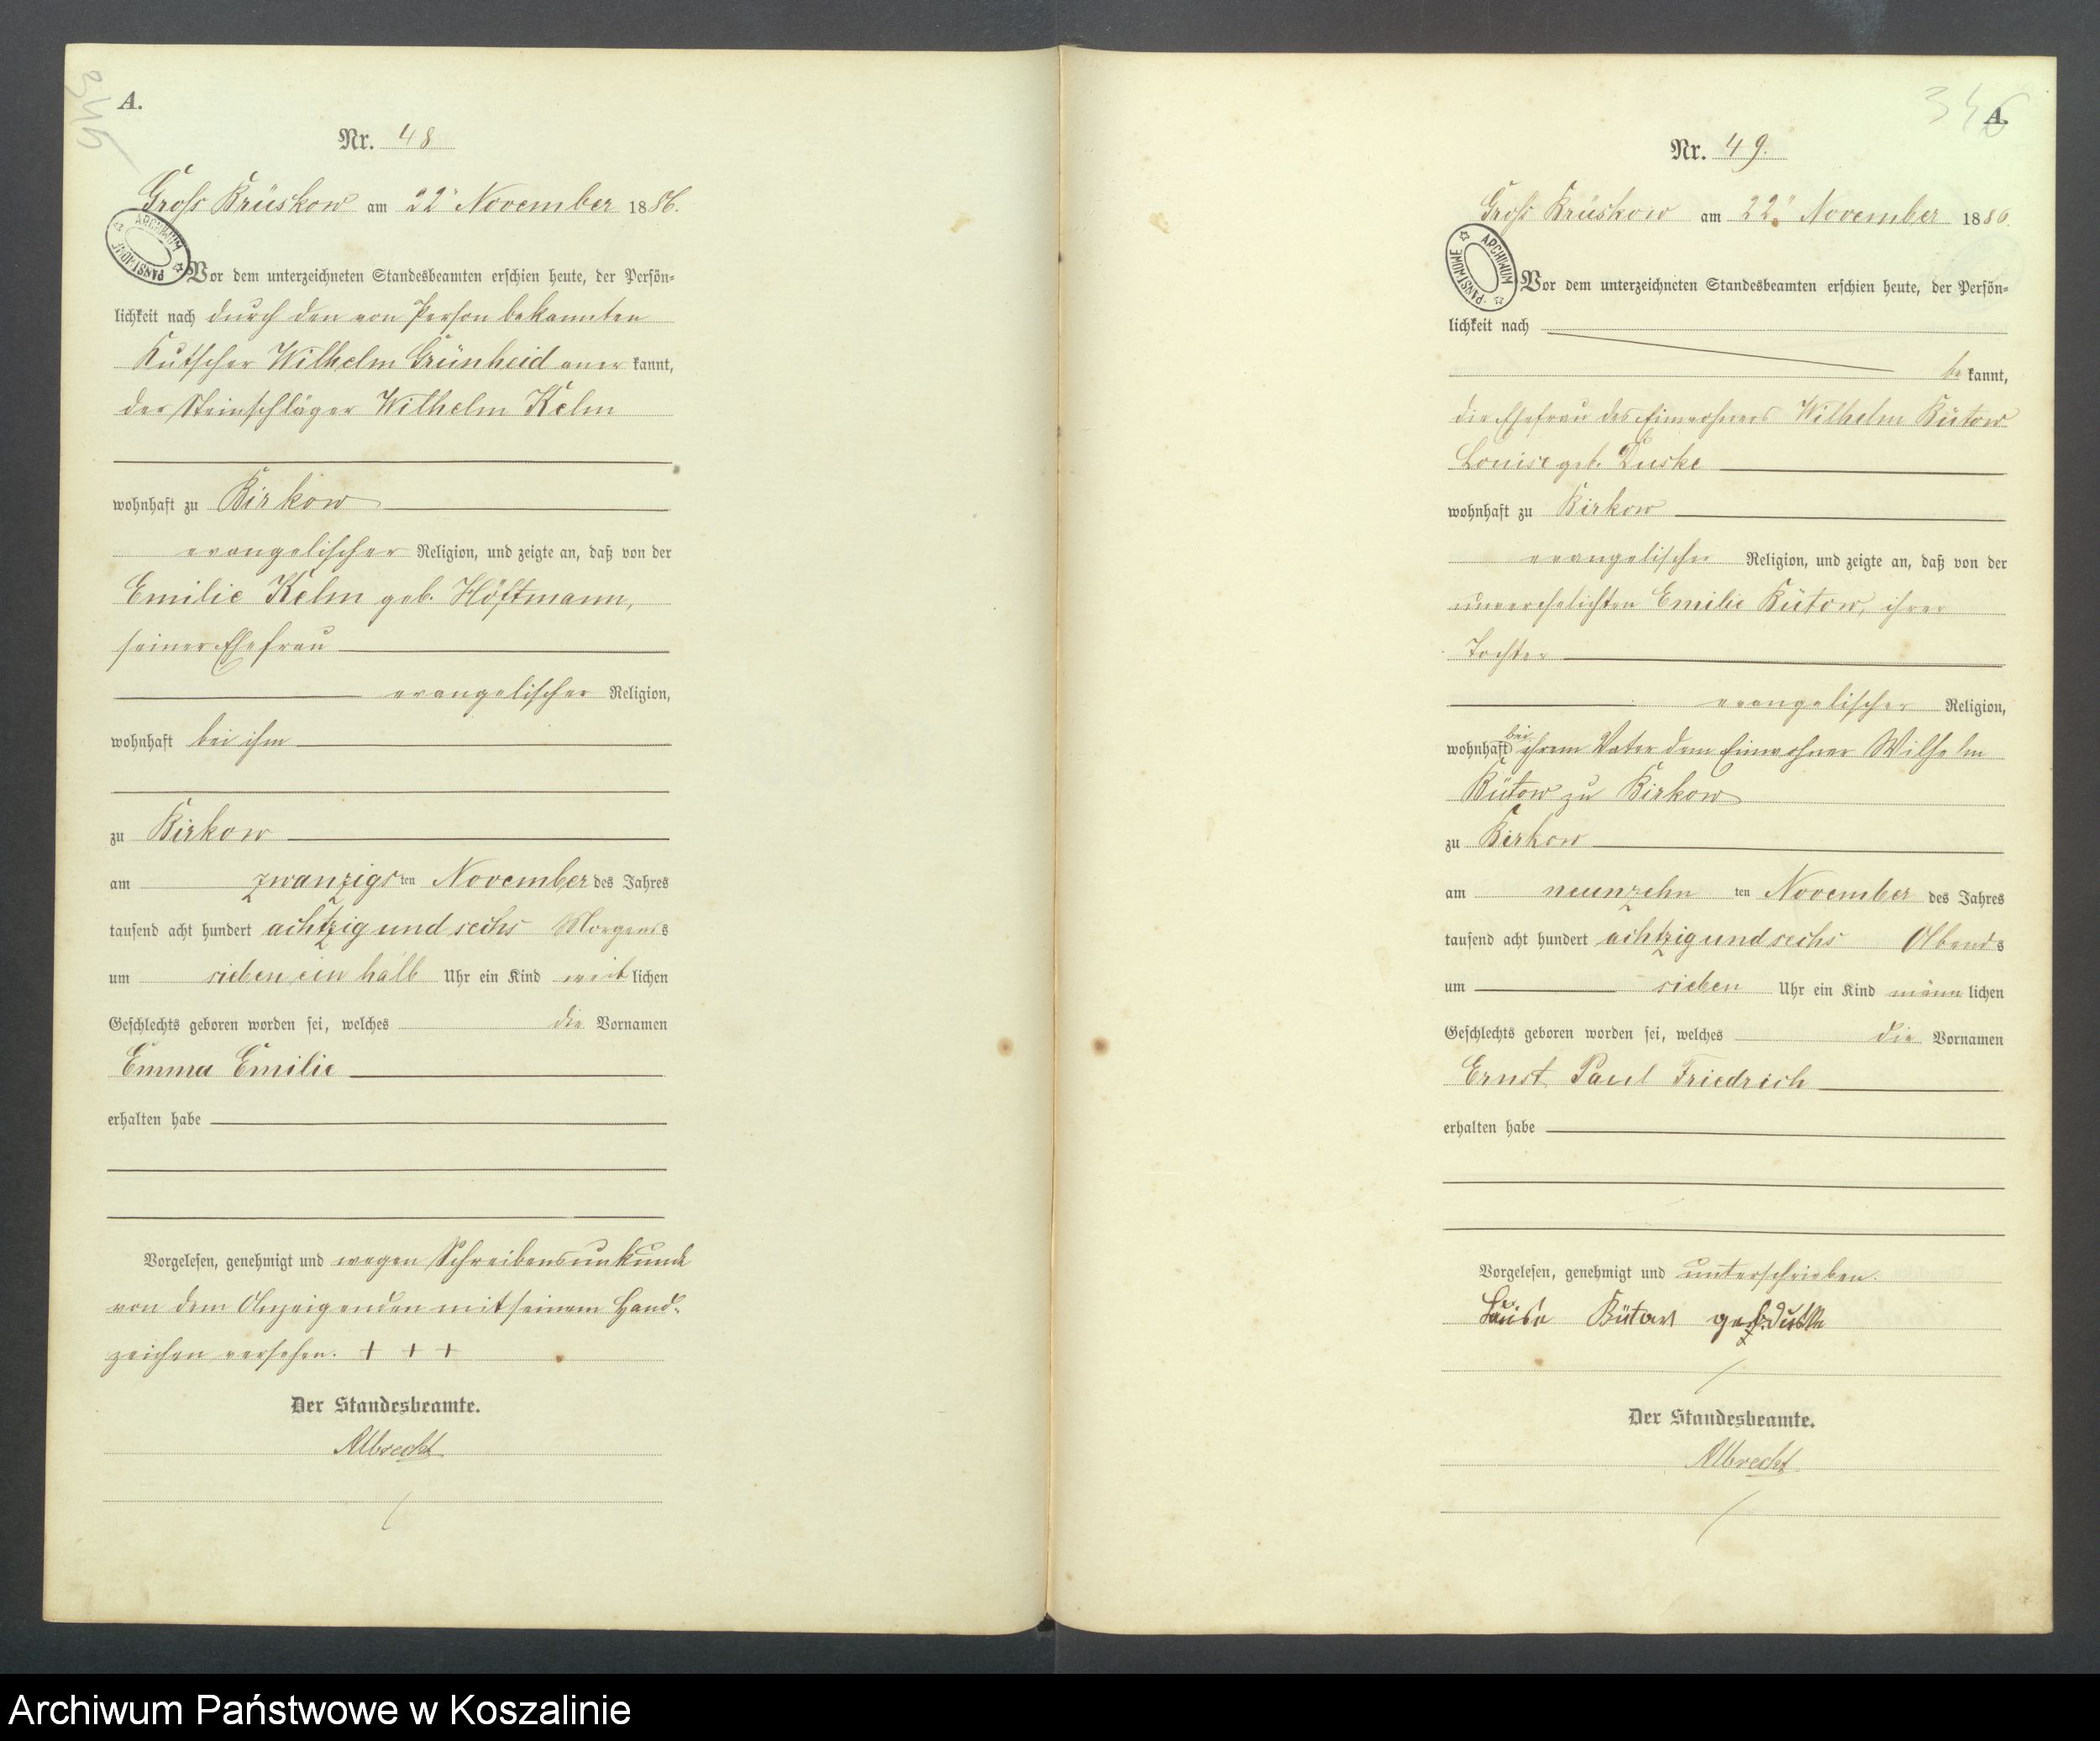 345
A.
Nr. 48
Groß Krüskow am 22ᵗ November 1886.
ARCHIWUM PAŃSTWOWE
Vor dem unterzeichneten Standesbeamten erschien heute, der Persön-
lichkeit nach durch den von Person bekannten
Kutscher Wilhelm Grünheid aner kannt,
der Steinschläger Wilhelm Kelm
wohnhaft zu Birkow
evangelischer Religion, und zeigte an, daß von der
Emilie Kelm geb. Höftmann,
seiner Ehefrau
evangelischer Religion,
wohnhaft bei ihm
zu Birkow
am zwanzigs ten November des Jahres
tausend acht hundert achtzig und sechs Morgens
um sieben ein halb Uhr ein Kind weib lichen
Geschlechts geboren worden sei, welches die Vornamen
Emma Emilie
erhalten habe
Vorgelesen, genehmigt und wegen Schreibensunkunde
von dem Anzeigenden mit seinem Hand-
zeichen versehen. + + +
Der Standesbeamte.
Albrecht
346
A.
Nr. 49.
Groß Krüskow am 22ᵗ November 1886.
ARCHIWUM PAŃSTWOWE
Vor dem unterzeichneten Standesbeamten erschien heute, der Persön-
lichkeit nach
be kannt,
die Ehefrau des Einwohners Wilhelm Bütow
Louise geb. Duske
wohnhaft zu Birkow
evangelischer Religion, und zeigte an, daß von der
unverehelichten Emilie Bütow, ihrer
Tochter
evangelischer Religion,
wohnhaft bei ihrem Vater dem Einwohner Wilhelm
Bütow zu Birkow
zu Birkow
am neunzehn ten November des Jahres
tausend acht hundert achtzig und sechs Abends
um sieben Uhr ein Kind männ lichen
Geschlechts geboren worden sei, welches die Vornamen
Ernst Paul Friedrich
erhalten habe
Vorgelesen, genehmigt und unterschrieben.
Luise Bütow geb. Duske
Der Standesbeamte.
Albrecht
Archiwum Państwowe w Koszalinie